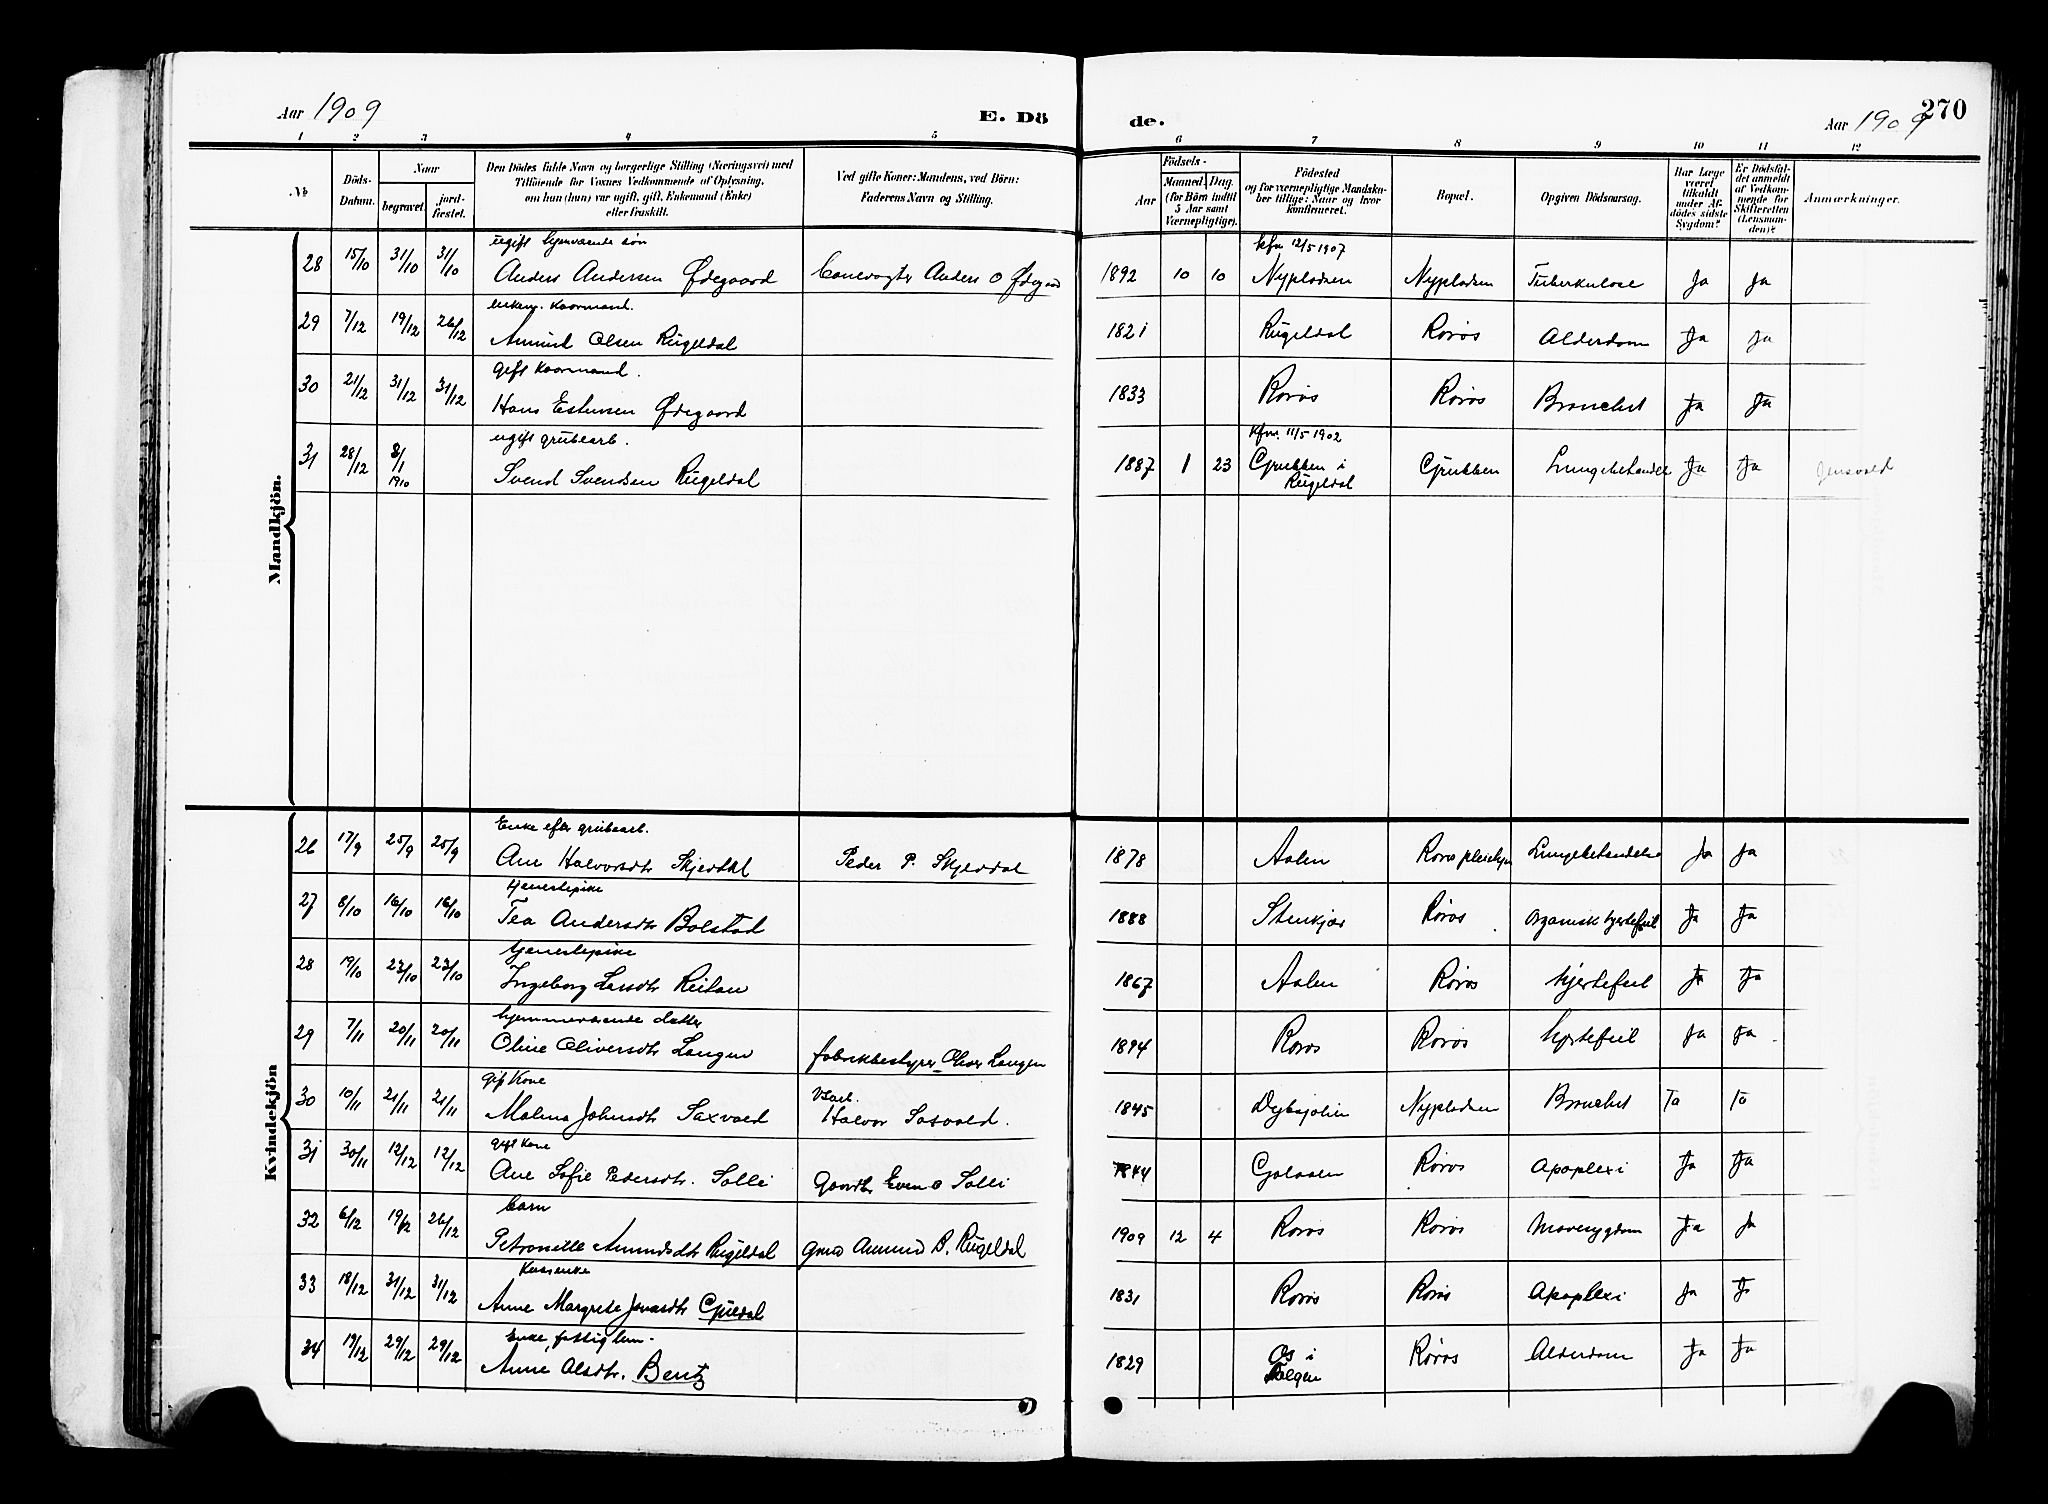 Aar 1909
E. Dö
de.
Aar 1909
270
1 2 3 4 5 6 7 8 9 10 11 12
No
Döds-Datum.
Naar
begravet.
jord-fæstet.
Den Dödes fulde Navn og borgerlige Stilling (Næringsvei) med
Tilföiende for Voxnes Vedkommende af Oplysning,
om hun (hun) var ugift, gift, Enkemand (Enke)
eller fraskilt.
Ved gifte Koner: Mandens, ved Börn:
Faderens Navn og Stilling.
Födsels-
Aar
Maaned.
Dag.
(for Börn indtil
5 Aar samt
Værnepligtige).
Födested
og for værnepligtige Mandska-
ber tillige: Naar og hvor
Konfirmeret.
Bopæl.
Opgiven Dödsaarsag.
Har Læge
været
tilkaldt
under Af-
dödes sidste
Sygdom?
Er Dödsfal-
det anmeldt
af Vedkom-
mende for
Skifteretten
(Lensman-
den)?
Anmærkninger.
Mandkjön.
ugift hjemværende søn kfm 12/5 1907
28 15/10 31/10 31/10 Anders Andersen Ødegaard Banevogter Anders O Ødegaard 1892 10 10 Nypladsen Nypladsen Tuberkulose Ja Ja
enkem. Kaarmand.
29 7/12 19/12 26/12 Amund Olsen Rügeldal 1821 Rügeldal Røros Alderdom Ja Ja
gift Kaarmand.
30 21/12 31/12 31/12 Hans Estensen Ødegaard 1833 Røros Røros Bronchit Ja Ja
ugift grubearb. kfm. 11/5 1902
31 28/12 8/1 1910 Svend Svendsen Rügeldal 1887 1 23 Grubben i Rügeldal Grubben Ja Ja Jensvold
Kvindekjön
Enke efter grubearb.
26 17/9 25/9 25/9 Ane Halvorsdtr Skjevdal Peder P. Skjevdal 1878 Aalen Røros pleiehjem Ja Ja
tjenestepike
27 8/10 16/10 16/10 Tea Andersdtr Bolstad 1888 Stenkjær Røros Organisk hjertefeil Ja Ja
tjenestepike
28 19/10 23/10 23/10 Ingeborg Larsdtr Reitan 1867 Aalen Røros hjertefeil Ja Ja
hjemmeværende datter
29 7/11 20/11 20/11 Oline Oliversdtr Langen fabrikbestyrer Oliver Langen 1894 Røros Røros hjertefeil Ja Ja
gift Kone
30 10/11 21/11 21/11 Malena Johnsdtr Saxvold Halvor Saxvold. 1845 Nypladsen Bronchit Ja Ja
gift Kone
31 30/11 12/12 12/12 Ane Sofie Pedersdtr. Solli Gaardbr Even O Solli 1844 Galaaen Røros Apoplexi Ja Ja
barn
32 6/12 19/12 26/12 Petronille Amundsdtr Rügeldal Gmd Amund B. Rügeldal 1909 12 4 Røros Røros Mavesygdom Ja Ja
33 18/12 31/12 31/12 Anne Margrete Jonasdtr Gjüldal 1831 Røros Røros Apoplexi Ja Ja
Enke, fattiglem.
34 19/12 29/12 29/12 Anne Olsdtr. Bentz 1829 Os i Tolgen Røros Alderdom Ja Ja